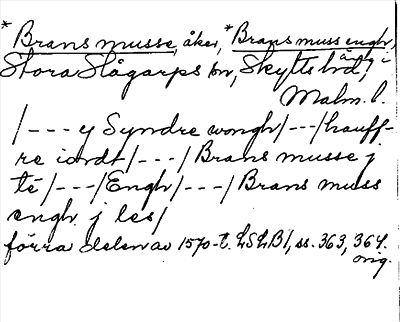 *Brans musse, åker, *Brans muss engh,
äng i
Stora Slågarps sn, Skytts hd,
Malm. l.
/---y Syndre wongh/---/hauff-
re iordt/---/Brans musse j
té/---/Engh/---/Brans muss
engh j les/
förra delen av 1570-t. LSLB1, ss. 363, 364.
orig.